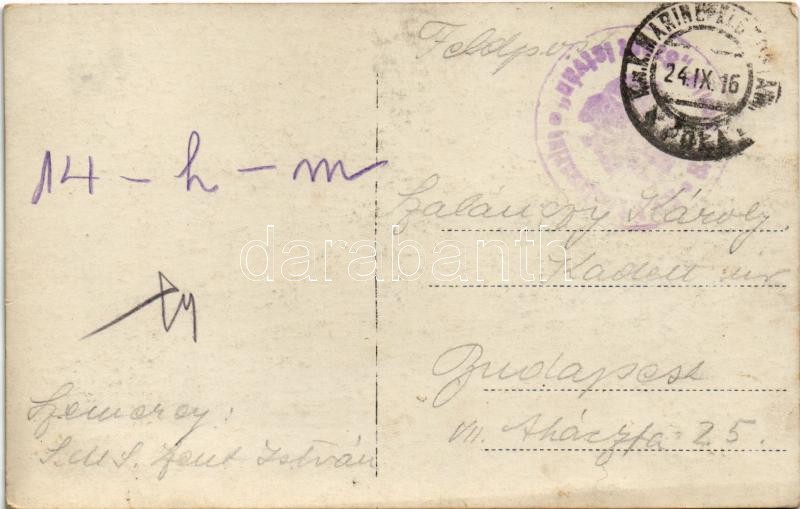 Feldpost
K.u.K. MARINEFELDPOSTAMT
24.IX.16
POLA
István
14 - h - m
Szalánczy Károly
Kadett úr
Budapest
VII. 25.
S.M.S. Szent István
darabanth